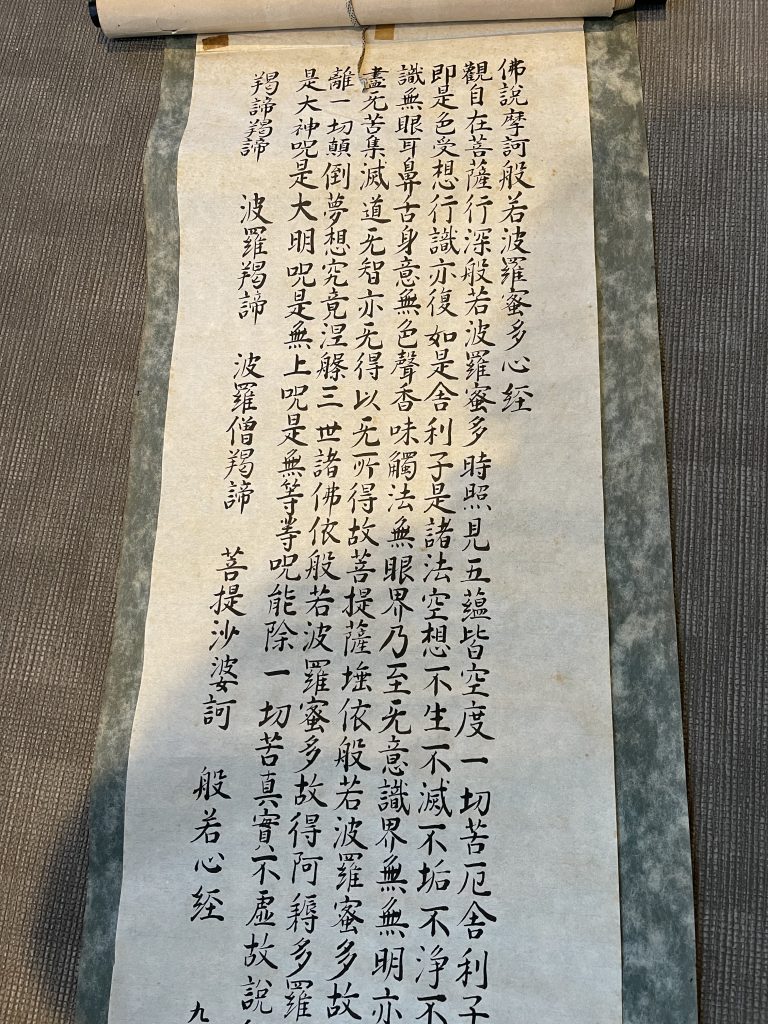 佛說摩訶般若波羅蜜多心経
觀自在菩薩行深般若波羅蜜多時照見五蘊皆空度一切苦厄舍利子
即是色受想行識亦復如是舍利子是諸法空想不生不滅不垢不淨不
識無眼耳鼻舌身意無色聲香味觸法無眼界乃至无意識界無無明亦
盡无苦集滅道无智亦无得以无所得故菩提薩埵依般若波羅蜜多故
離一切顛倒夢想究竟涅槃三世諸佛依般若波羅蜜多故得阿耨多羅
是大神呪是大明呪是無上呪是無等等呪能除一切苦真實不虛故說
羯諦羯諦 波羅羯諦 波羅僧羯諦 菩提沙婆訶 般若心経
九